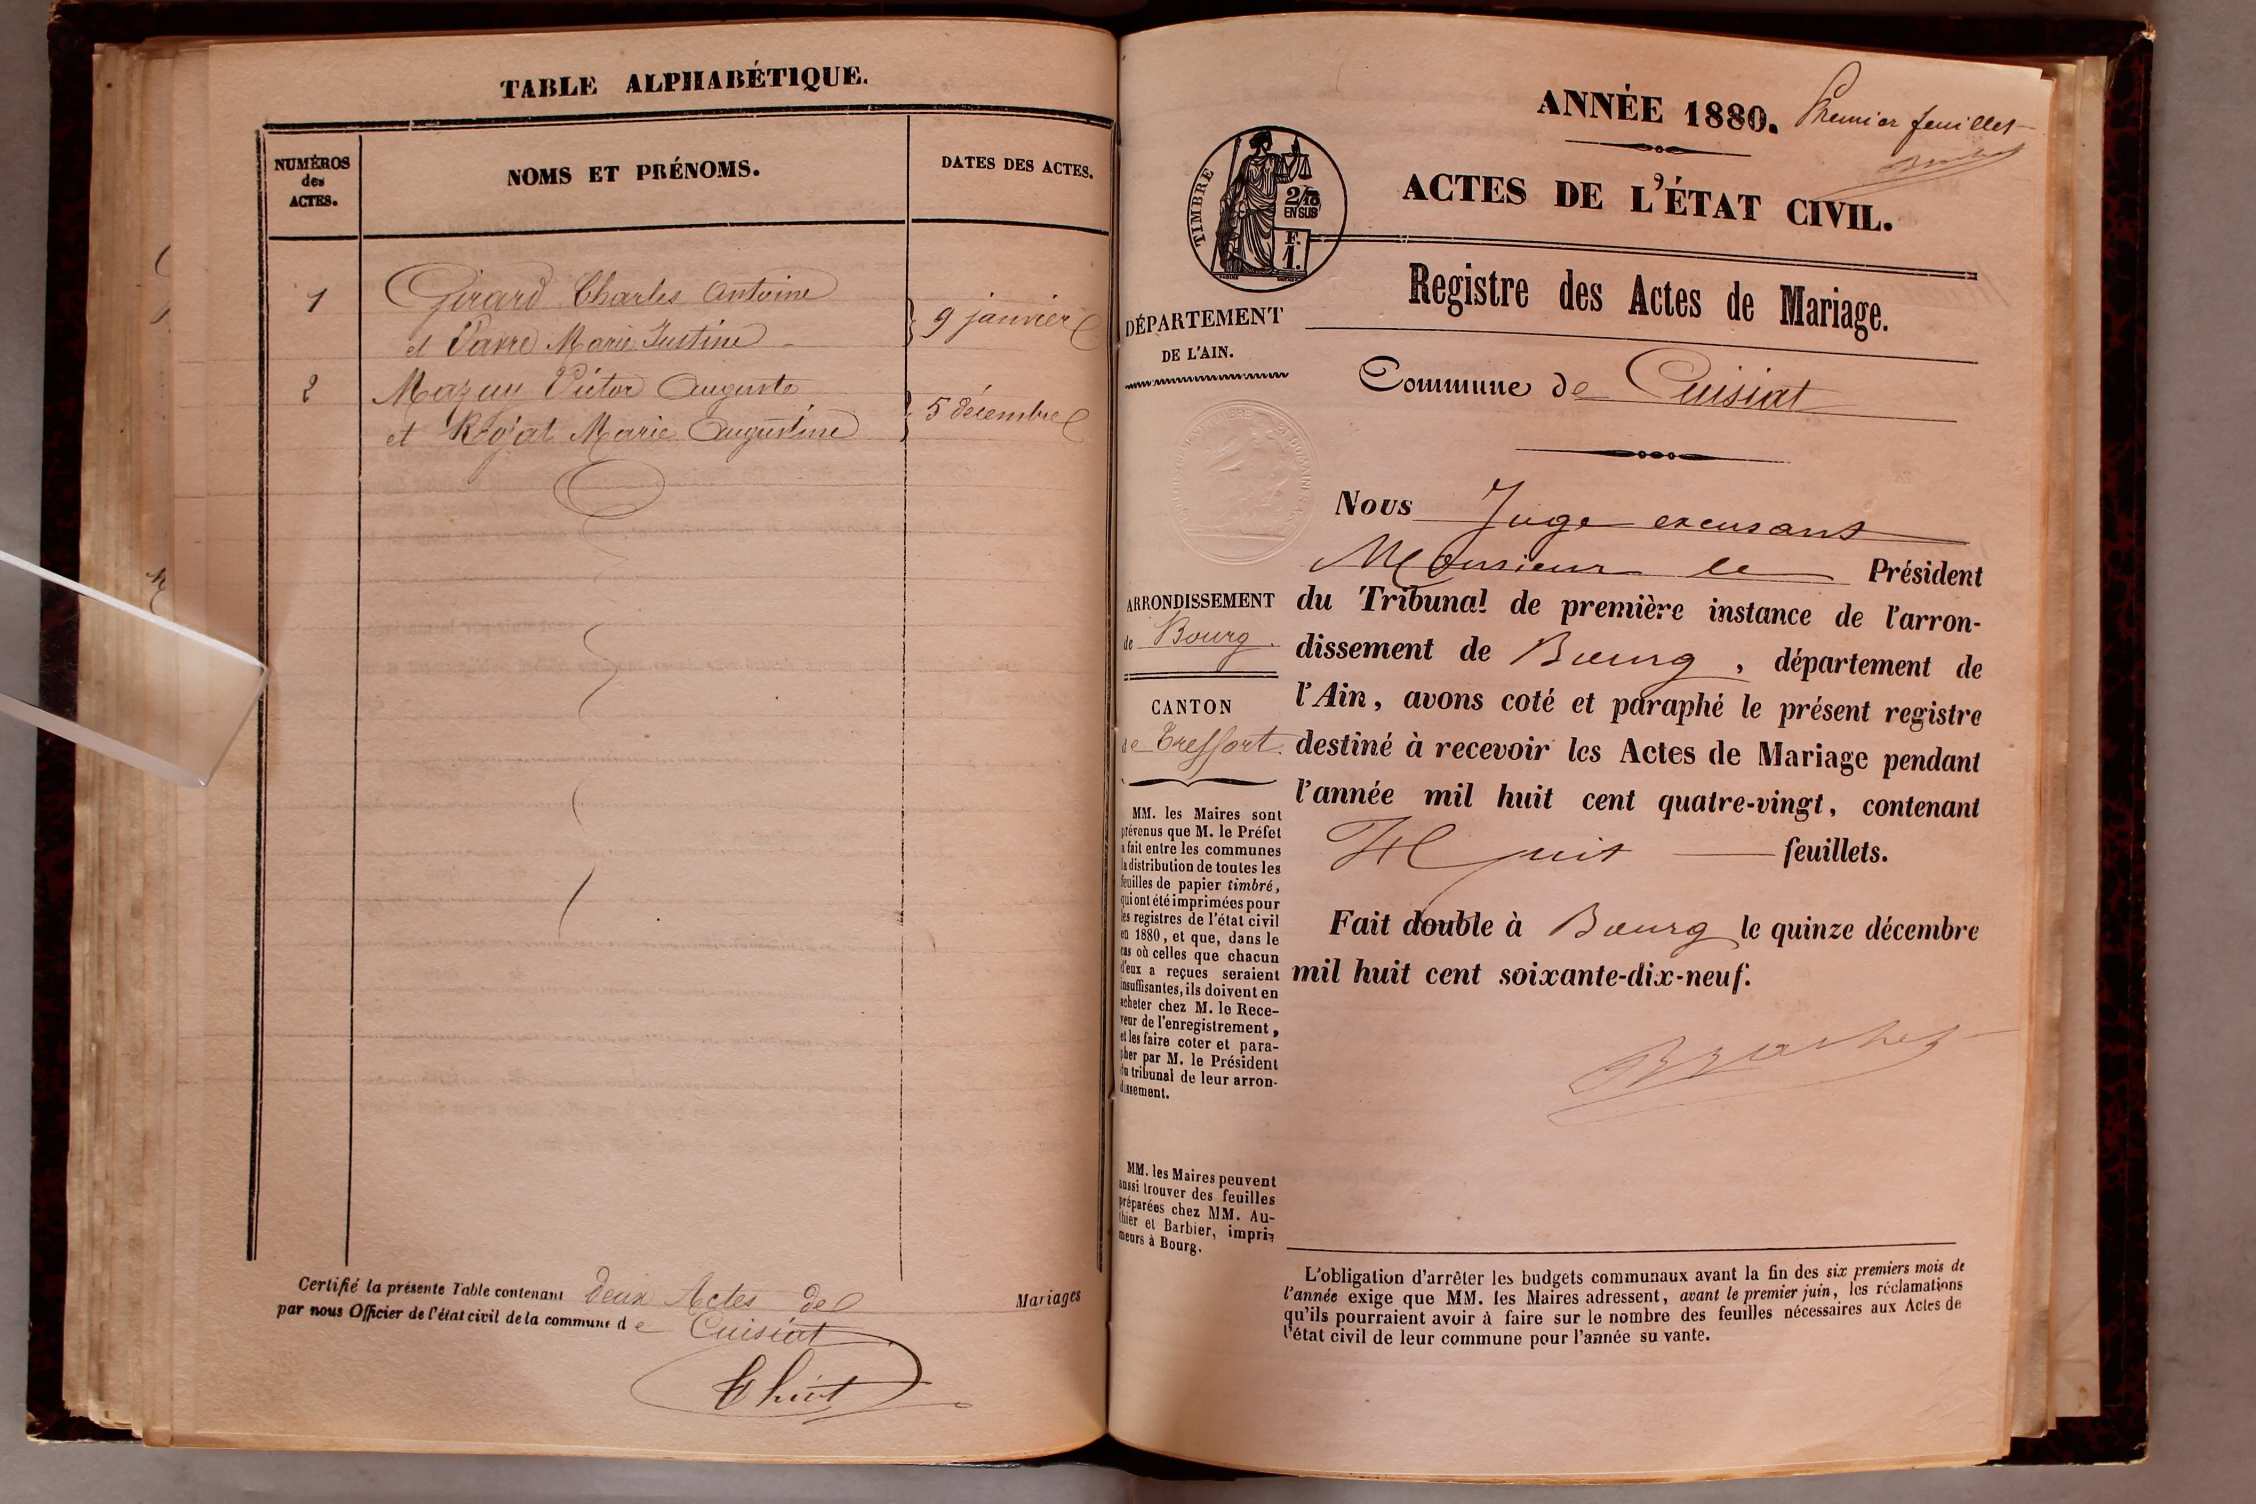 TABLE ALPHABÉTIQUE.
NUMÉROS
des
ACTES.
NOMS ET PRÉNOMS.
DATES DES ACTES.
1
Girard Charles Antoine
et Favre Marie Justine
9 janvier
2
Mazuy Victor Auguste
et Rojat Marie Augustine
5 décembre
Certifié la présente Table contenant deux Actes de Mariages
par nous Officier de l'état civil de la commune de Cuisiat
Thiot
ANNÉE 1880.
Premier feuillet
ACTES DE L'ÉTAT CIVIL.
TIMBRE
2/10
EN SUS
F.
1.
Registre des Actes de Mariage.
DÉPARTEMENT
DE L'AIN.
Commune de Cuisiat
Nous Juge excusant
Monsieur le Président
du Tribunal de première instance de l'arron-
dissement de Bourg, département de
l'Ain, avons coté et paraphé le présent registre
destiné à recevoir les Actes de Mariage pendant
l'année mil huit cent quatre-vingt, contenant
Huit feuillets.
Fait double à Bourg le quinze décembre
mil huit cent soixante-dix-neuf.
ARRONDISSEMENT
de Bourg
CANTON
de Treffort
MM. les Maires sont
prévenus que M. le Préfet
a fait entre les communes
la distribution de toutes les
feuilles de papier timbré,
qui ont été imprimées pour
les registres de l'état civil
en 1880, et que, dans le
cas où celles que chacun
d'eux a reçues seraient
insuffisantes, ils doivent en
acheter chez M. le Rece-
veur de l'enregistrement,
et les faire coter et para-
pher par M. le Président
du tribunal de leur arron-
dissement.
MM. les Maires peuvent
aussi trouver des feuilles
préparées chez MM. Au-
thier et Barbier, impri-
meurs à Bourg.
L'obligation d'arrêter les budgets communaux avant la fin des six premiers mois de
l'année exige que MM. les Maires adressent, avant le premier juin, les réclamations
qu'ils pourraient avoir à faire sur le nombre des feuilles nécessaires aux Actes de
l'état civil de leur commune pour l'année su vante.